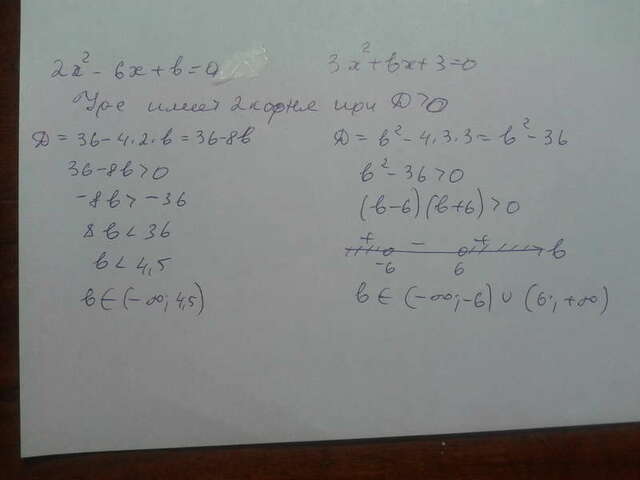 2x² - 6x + b = 0
Ур-е имеет 2 корня при D > 0
D = 36 - 4·2·b = 36 - 8b
36 - 8b > 0
-8b > -36
8b < 36
b < 4,5
b ∈ (-∞; 4,5)
3x² + bx + 3 = 0
D = b² - 4·3·3 = b² - 36
b² - 36 > 0
(b-6)(b+6) > 0
+ - + b
-6 6
b ∈ (-∞; -6) ∪ (6; +∞)